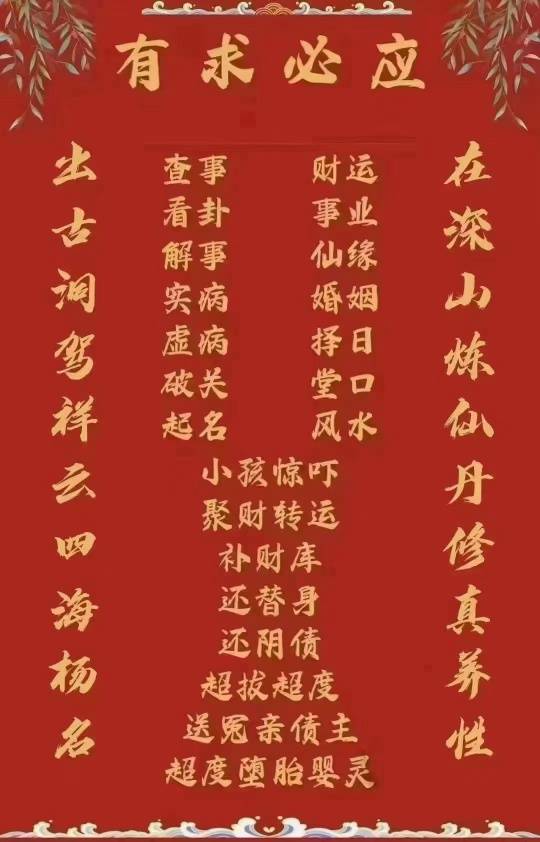 有求必应
在深山炼仙丹修真养性
出古洞驾祥云四海杨名
查事 财运
看卦 事业
解事 仙缘
实病 婚姻
虚病 择日
破关 堂口
起名 风水
小孩惊吓
聚财转运
补财库
还替身
还阴债
超拔超度
送冤亲债主
超度堕胎婴灵